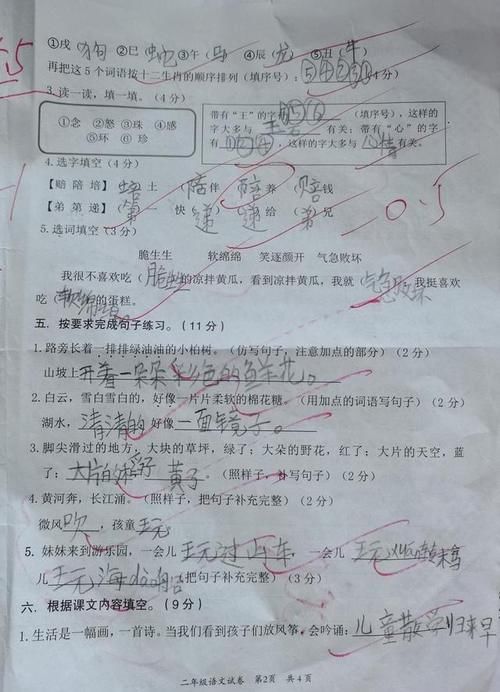 ①戌 狗 ②巳 蛇 ③午 马 ④辰 龙 ⑤丑 牛
再把这5个词语按十二生肖的顺序排列(填序号): (4分)
3.读一读,填一填。(4分)
①念 ②怒 ③珠 ④感
⑤环 ⑥珍
带有“王”的字 (填序号),这样的
字大多与 有关;带有“心”的字
有 ,这样的字大多与 心情 有关。
4.选字填空(4分)
【赔 陪 培】 培 土 陪 伴 培 养 (赔)钱
【弟 第 递】( 第 一 快(递 递 给 (弟)兄
-0.5
5.选词填空(3分)
脆生生 软绵绵 笑逐颜开 气急败坏
我很不喜欢吃(脆生生)的凉拌黄瓜,看到凉拌黄瓜,我就(气急败坏 我挺喜欢
吃(软绵绵)的蛋糕。
五、按要求完成句子练习。(11分)
1.路旁长着一排排绿油油的小柏树。(仿写句子,注意加点的部分)(2分)
山坡上开着一朵朵彩色的鲜花。
2.白云,雪白雪白的,好像一片片柔软的棉花糖。(用加点的词语写句子)(2分)
湖水,清清的 好像 一面镜子。
3.脚尖滑过的地方,大块的草坪,绿了;大朵的野花,红了;大片的天空,蓝
了;大片的 黄了 。(照样子,补写句子)(2分)
4.黄河奔,长江涌。(照样子,把句子补充完整)(2分)
微风吹 ,孩童 玩。
5. 妹妹来到游乐园,一会儿 玩过山车 ,一会儿 玩 ,一会
儿 玩海 把句子补充完整)(3分)
六、根据课文内容填空。(9分)
1.生活是一幅画,一首诗。当我们看到孩子们放风筝,会吟诵:儿童散学归来早
二年级语文试卷 第2页 共4页